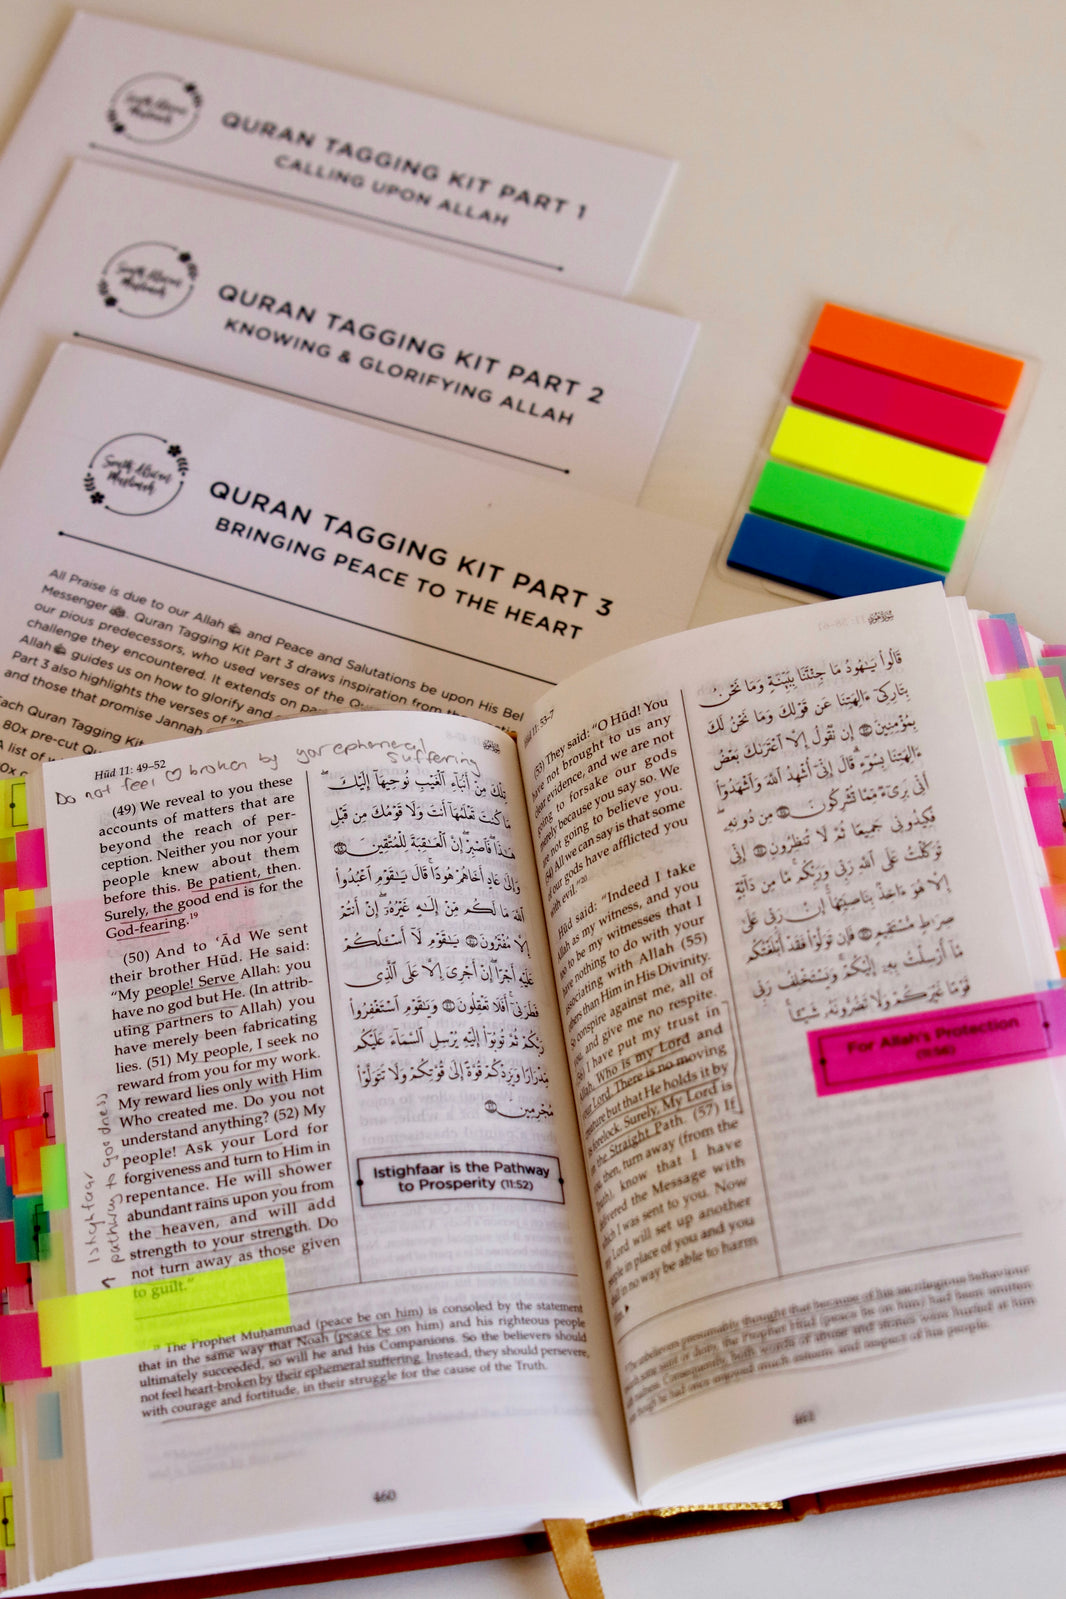 South African
Muslimah
QURAN TAGGING KIT PART 1
CALLING UPON ALLAH
South African
Muslimah
QURAN TAGGING KIT PART 2
KNOWING & GLORIFYING ALLAH
South African
Muslimah
QURAN TAGGING KIT PART 3
BRINGING PEACE TO THE HEART
All Praise is due to our Allah and Peace and Salutations be upon His Bel
Messenger. Quran Tagging Kit Part 3 draws inspiration from the
our pious predecessors, who used verses of the Qur
challenge they encountered. It extends on par
Allah guides us on how to glorify and
Part 3 also highlights the verses of
and those that promise Jannah
Each Quran Tagging Kit
80x pre-cut Qu
A list of
Do not feel broken by your ephemeral
suffering
Hūd 11: 49–52
(49) We reveal to you these
accounts of matters that are
beyond the reach of per-
ception. Neither you nor your
people knew about them
before this. Be patient, then.
Surely, the good end is for the
God-fearing.19
(50) And to ‘Ād We sent
their brother Hūd. He said:
“My people! Serve Allah: you
have no god but He. (In attrib-
uting partners to Allah) you
have merely been fabricating
lies. (51) My people, I seek no
reward from you for my work.
My reward lies only with Him
Who created me. Do you not
understand anything? (52) My
people! Ask your Lord for
forgiveness and turn to Him in
repentance. He will shower
abundant rains upon you from
the heaven, and will add
strength to your strength. Do
not turn away as those given
to guilt.”
Istighfaar
pathway to goodness
تِلْكَ مِنْ أَنۢبَآءِ ٱلْغَيْبِ نُوحِيهَآ إِلَيْكَ
مَا كُنتَ تَعْلَمُهَآ أَنتَ وَلَا قَوْمُكَ مِن قَبْلِ
هَـٰذَا فَٱصْبِرْ إِنَّ ٱلْعَـٰقِبَةَ لِلْمُتَّقِينَ ۝٤٩
وَإِلَىٰ عَادٍ أَخَاهُمْ هُودًا قَالَ يَـٰقَوْمِ ٱعْبُدُوا۟
ٱللَّهَ مَا لَكُم مِّنْ إِلَـٰهٍ غَيْرُهُۥٓ إِنْ أَنتُمْ
إِلَّا مُفْتَرُونَ ۝٥٠ يَـٰقَوْمِ لَآ أَسْـَٔلُكُمْ
عَلَيْهِ أَجْرًا إِنْ أَجْرِىَ إِلَّا عَلَى ٱلَّذِى
فَطَرَنِىٓ أَفَلَا تَعْقِلُونَ ۝٥١ وَيَـٰقَوْمِ ٱسْتَغْفِرُوا۟
رَبَّكُمْ ثُمَّ تُوبُوٓا۟ إِلَيْهِ يُرْسِلِ ٱلسَّمَآءَ عَلَيْكُم
مِّدْرَارًا وَيَزِدْكُمْ قُوَّةً إِلَىٰ قُوَّتِكُمْ وَلَا تَتَوَلَّوْا۟
مُجْرِمِينَ ۝٥٢
Istighfaar is the Pathway
to Prosperity (11:52)
19 The Prophet Muḥammad (peace be on him) is consoled by the statement
that in the same way that Noah (peace be on him) and his righteous people
ultimately succeeded, so will he and his Companions. So the believers should
not feel heart-broken by their ephemeral suffering. Instead, they should persevere,
with courage and fortitude, in their struggle for the cause of the Truth.
460
Hūd 11: 53–7
(53) They said: “O Hūd! You
have not brought to us any
clear evidence, and we are not
going to forsake our gods
merely because you say so. We
are not going to believe you.
(54) All we can say is that some
of our gods have afflicted you
with evil.”20
Hūd said: “Indeed I take
Allah as my witness, and you
too to be my witnesses that I
have nothing to do with your
associating with Allah (55)
others than Him in His Divinity.
So conspire against me, all of
you, and give me no respite.
(56) I have put my trust in
Allah, Who is my Lord and
your Lord. There is no moving
creature but that He holds it by
its forelock. Surely, My Lord is
on the Straight Path. (57) If
you, then, turn away (from the
Truth), know that I have
delivered the Message with
which I was sent to you. Now
my Lord will set up another
people in place of you and you
will in no way be able to harm
Him
قَالُوا۟ يَـٰهُودُ مَا جِئْتَنَا بِبَيِّنَةٍ وَمَا نَحْنُ
بِتَارِكِىٓ ءَالِهَتِنَا عَن قَوْلِكَ وَمَا نَحْنُ لَكَ
بِمُؤْمِنِينَ ۝٥٣ إِن نَّقُولُ إِلَّا ٱعْتَرَىٰكَ بَعْضُ
ءَالِهَتِنَا بِسُوٓءٍ قَالَ إِنِّىٓ أُشْهِدُ ٱللَّهَ وَٱشْهَدُوٓا۟
أَنِّى بَرِىٓءٌ مِّمَّا تُشْرِكُونَ ۝٥٤ مِن دُونِهِۦ
فَكِيدُونِى جَمِيعًا ثُمَّ لَا تُنظِرُونِ ۝٥٥ إِنِّى
تَوَكَّلْتُ عَلَى ٱللَّهِ رَبِّى وَرَبِّكُم مَّا مِن دَآبَّةٍ
إِلَّا هُوَ ءَاخِذٌۢ بِنَاصِيَتِهَآ إِنَّ رَبِّى عَلَىٰ
صِرَٰطٍ مُّسْتَقِيمٍ ۝٥٦ فَإِن تَوَلَّوْا۟ فَقَدْ أَبْلَغْتُكُم
مَّآ أُرْسِلْتُ بِهِۦٓ إِلَيْكُمْ وَيَسْتَخْلِفُ رَبِّى
قَوْمًا غَيْرَكُمْ وَلَا تَضُرُّونَهُۥ شَيْـًٔا
For Allah's Protection
(11:56)
461